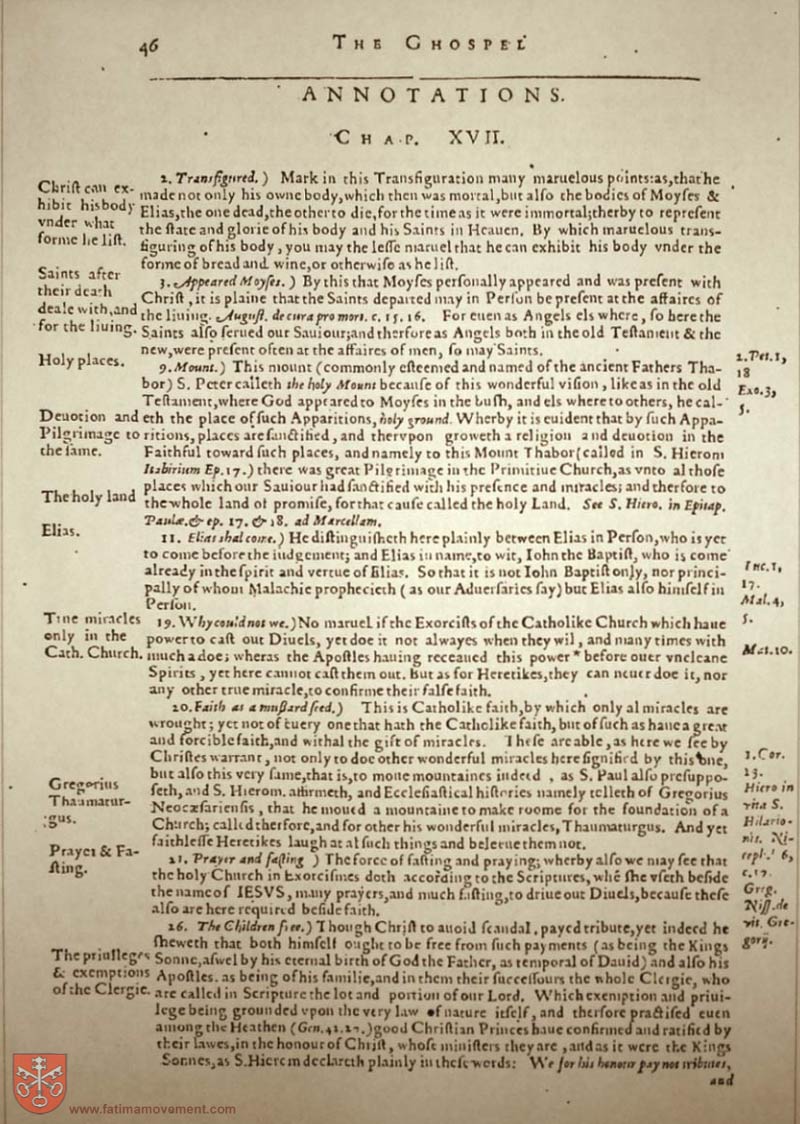 46
THE GHOSPEL
ANNOTATIONS.
CHAP. XVII.
2. Transfigured.) Mark in this Transfiguration many maruelous points: as, that he
made not only his owne body, which then was mortal, but alſo the bodies of Moyſes &
Elias, the one dead, the other to die, for the time as it were immortal; therby to repreſent
the ſtate and glorie of his body and his Saints in Heauen. By which maruelous trans-
figuring of his body, you may the leſſe maruel that he can exhibit his body vnder the
forme of bread and wine, or otherwiſe as he liſt.
3. Appeared Moyſes.) By this that Moyſes perſonally appeared and was preſent with
Chriſt, it is plaine that the Saints departed may in Perſon be preſent at the affaires of
the liuing. Auguſt. de cura pro mort. c. 15. 16. For euen as Angels els where, ſo here the
Saints alſo ſerued our Sauiour; and therfore as Angels both in the old Teſtament & the
new, were preſent often at the affaires of men, ſo may Saints.
9. Mount.) This mount (commonly eſteemed and named of the ancient Fathers Tha-
bor) S. Peter calleth the holy Mount becauſe of this wonderful viſion, like as in the old
Teſtament, where God appeared to Moyſes in the buſh, and els where to others, he cal-
eth the place of ſuch Apparitions, holy ground. Wherby it is euident that by ſuch Appa-
ritions, places are ſanctified, and thervpon groweth a religion and deuotion in the
Faithful toward ſuch places, and namely to this Mount Thabor (called in S. Hierom
Itabirium Ep. 17.) there was great Pilgrimage in the Primitiue Church, as vnto al thoſe
places which our Sauiour had ſanctified with his preſence and miracles; and therfore to
the whole land of promiſe, for that cauſe called the holy Land. See S. Hiero. in Epitap.
Paulæ. & ep. 17. & 18. ad Marcellam.
11. Elias ſhal come.) He diſtinguiſheth here plainly between Elias in Perſon, who is yet
to come before the iudgement; and Elias in name, to wit, Iohn the Baptiſt, who is come
already in the ſpirit and vertue of Elias. So that it is not Iohn Baptiſt only, nor princi-
pally of whom Malachie prophecieth (as our Aduerſaries ſay) but Elias alſo himſelf in
Perſon.
19. Why could not we.) No maruel if the Exorciſts of the Catholike Church which haue
power to caſt out Diuels, yet doe it not alwayes when they wil, and many times with
much adoe; wheras the Apoſtles hauing receaued this power * before ouer vncleane
Spirits, yet here cannot caſt them out. But as for Heretikes, they can neuer doe it, nor
any other true miracle, to confirme their falſe faith.
20. Faith as a muſtard ſeed.) This is Catholike faith, by which only al miracles are
wrought; yet not of euery one that hath the Catholike faith, but of ſuch as haue a great
and forcible faith, and withal the gift of miracles. Theſe are able, as here we ſee by
Chriſtes warrant, not only to doe other wonderful miracles here ſignified by this one,
but alſo this very ſame, that is, to moue mountaines indeed, as S. Paul alſo preſuppo-
ſeth, and S. Hierom. affirmeth, and Eccleſiaſtical hiſtories namely telleth of Gregorius
Neocæſarienſis, that he moued a mountaine to make roome for the foundation of a
Church; called therfore, and for other his wonderful miracles, Thaumaturgus. And yet
faithleſſe Heretikes laugh at al ſuch things and beleeue them not.
21. Prayer and faſting) The force of faſting and praying; wherby alſo we may ſee that
the holy Church in Exorciſmes doth according to the Scriptures, whē ſhe vſeth beſide
the name of IESVS, many prayers, and much faſting, to driue out Diuels, becauſe theſe
alſo are here required beſide faith.
26. The Children free.) Though Chriſt to auoid ſcandal, payed tribute, yet indeed he
ſheweth that both himſelf ought to be free from ſuch payments (as being the Kings
Sonne, aſwel by his eternal birth of God the Father, as temporal of Dauid) and alſo his
Apoſtles. as being of his familie, and in them their ſucceſſours the whole Clergie, who
are called in Scripture the lot and portion of our Lord. Which exemption and priui-
lege being grounded vpon the very law of nature itſelf, and therfore practiſed euen
among the Heathen (Gen. 42. 27.) good Chriſtian Princes haue confirmed and ratified by
their lawes, in the honour of Chriſt, whoſe miniſters they are, and as it were the Kings
Sonnes, as S. Hierem declareth plainly in theſe words: We for his honour pay not tributes,
and
Chriſt can ex-
hibit his body
vnder what
forme he liſt.
Saints after
their death
deale with, and
for the liuing.
Holy places.
Deuotion and
Pilgrimage to
the ſame.
The holy land
Elias.
True miracles
only in the
Cath. Church.
Gregorius
Thaumatur-
gus.
Prayer & Fa-
ſting.
The priuileges
& exemptions
of the Clergie.
2. Pet. 1,
18
Exo. 3,
5.
Luc. 1,
17.
Mal. 4,
5.
Mat. 10.
1. Cor.
13.
Hiero in
vita S.
Hilario-
nis. Ni-
ceph. 6,
c. 17
Greg.
Niſſ. de
vit. Gre-
gorij.
www.fatimamovement.com